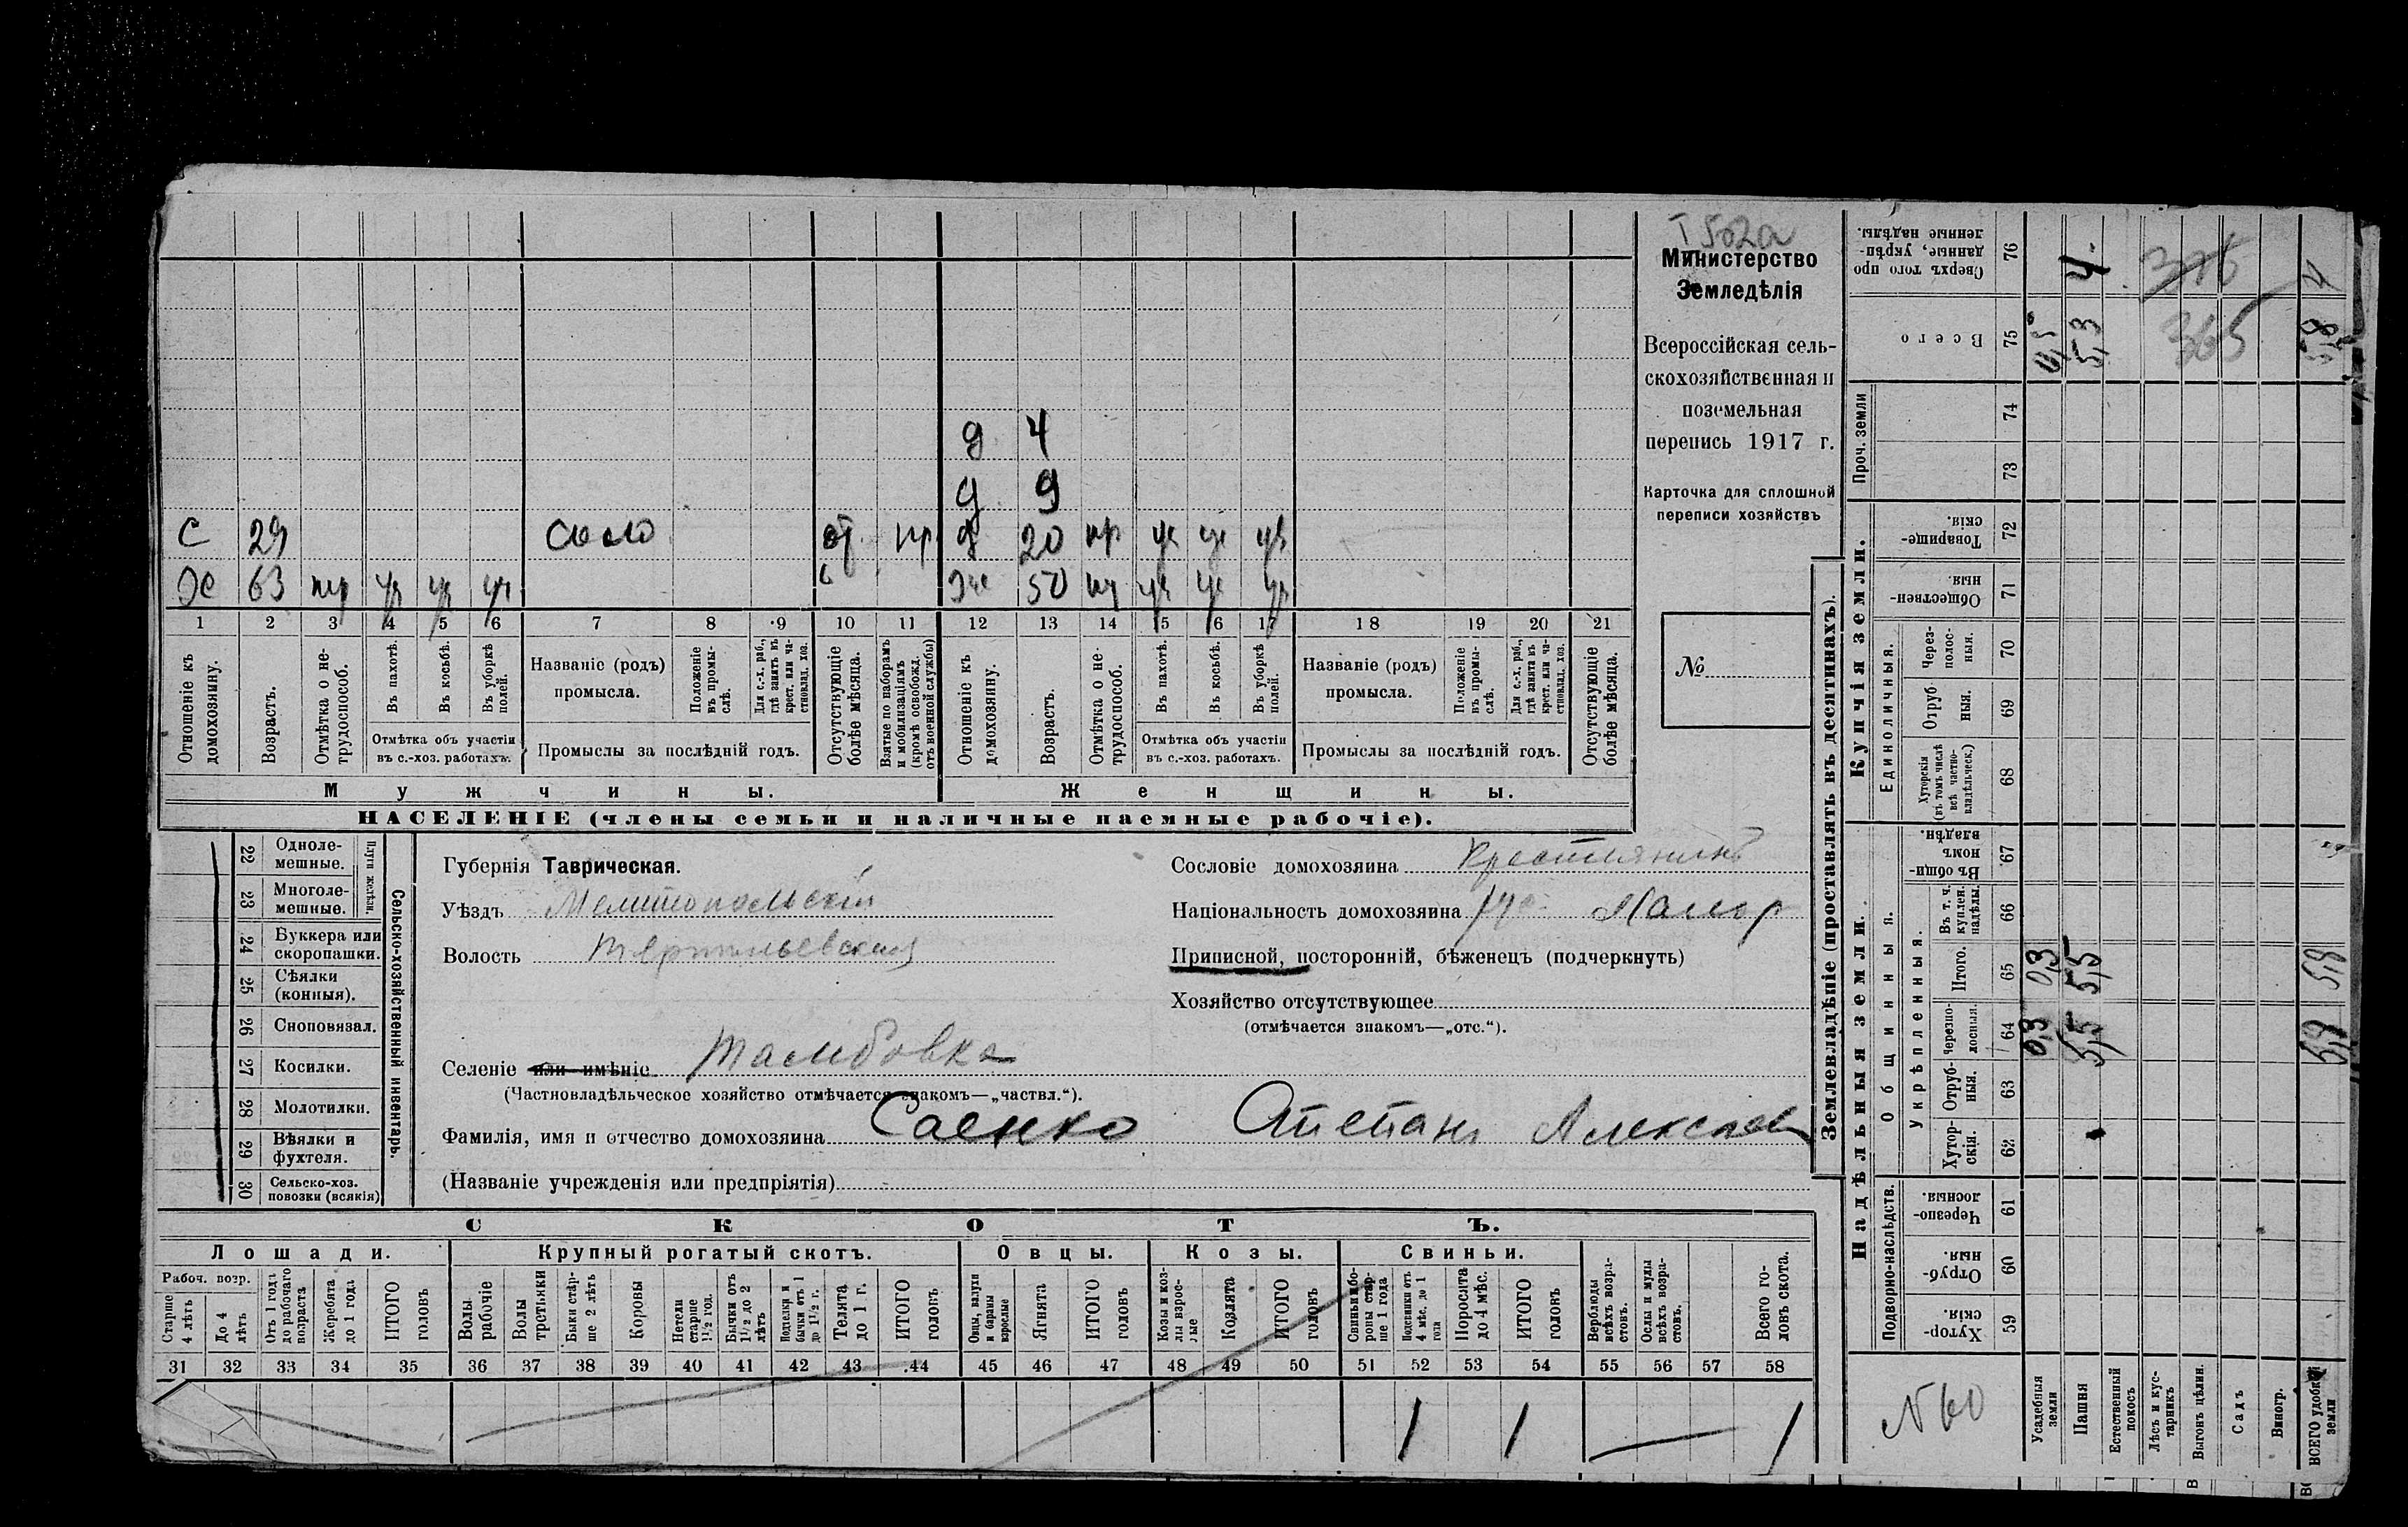 I 502а
Министерство
Земледѣлія
Всероссійская сель-
скохозяйственная и
поземельная
перепись 1917 г.
Карточка для сплошной
переписи хозяйствъ
№
д 4
д 9
С 29 от. пр д 20 нр
Х 63 50
1 2 3 4 5 6 7 8 9 10 11 12 13 14 15 16 17 18 19 20 21
Отношеніе къ домохозяину.
Возрастъ.
Отмѣтка о не-трудоспособ.
Въ пахотѣ.
Въ косьбѣ.
Въ уборкѣ полей.
Отмѣтка объ участіи въ с.-хоз. работахъ.
Названіе (родъ) промысла.
Положеніе въ промы-слѣ.
Для с.-х. раб., гдѣ занятъ въ крест. или ча-стновлад. хоз.
Промыслы за послѣдній годъ.
Отсутствующіе болѣе мѣсяца.
Взятые по наборамъ и мобилизаціямъ (кромѣ освобожд. отъ военной службы)
Отношеніе къ домохозяину.
Возрастъ.
Отмѣтка о не-трудоспособ.
Въ пахотѣ.
Въ косьбѣ.
Въ уборкѣ полей.
Отмѣтка объ участіи въ с.-хоз. работахъ.
Названіе (родъ) промысла.
Положеніе въ промы-слѣ.
Для с.-х. раб., гдѣ занята въ крест. или ча-стновлад. хоз.
Промыслы за послѣдній годъ.
Отсутствующіе болѣе мѣсяца.
Мужчины. Женщины.
НАСЕЛЕНІЕ (члены семьи и наличные наемные рабочіе).
Сельско-хозяйственный инвентарь.
Плуги желѣзн.
22 Одноле-мешные.
23 Многоле-мешные.
24 Буккера или скоропашки.
25 Сѣялки (конныя).
26 Сноповязал.
27 Косилки.
28 Молотилки.
29 Вѣялки и фухтеля.
30 Сельско-хоз. повозки (всякія)
Губернія Таврическая.
Уѣздъ Мелитопольскій
Волость
Селеніе или имѣніе Тамбовка
(Частновладѣльческое хозяйство отмѣчается знакомъ—„частвл.“).
Фамилія, имя и отчество домохозяина Саенко Степанъ Алексѣев
(Названіе учрежденія или предпріятія)
Сословіе домохозяина Крестьянинъ
Національность домохозяина рус Малор
Приписной, посторонній, бѣженецъ (подчеркнуть)
Хозяйство отсутствующее
(отмѣчается знакомъ—„отс.“).
СКОТЪ.
Лошади. Крупный рогатый скотъ. Овцы. Козы. Свиньи.
Рабоч. возр.
Старше 4 лѣтъ
До 4 лѣтъ
Отъ 1 года до рабочаго возраста
Жеребята до 1 года
ИТОГО головъ
Волы рабочіе
Волы третьяки
Быки стар-ше 2 лѣтъ
Коровы
Нетели старше 1½ год.
Бычки отъ 1½ до 2 лѣтъ
Подтелки и бычки отъ 1 до 1½ г.
Телята до 1 г.
ИТОГО головъ
Овцы, валухи и бараны взрослые
Ягнята
ИТОГО головъ
Козы и коз-лы взрос-лые
Козлята
ИТОГО головъ
Свиньи и бо-ровы стар-ше 1 года
Подсвинки отъ 4 мѣс. до 1 года
Поросята до 4 мѣс.
ИТОГО головъ
Верблюды всѣхъ возра-стовъ.
Ослы и мулы всѣхъ возра-стовъ.
Всего го-ловъ скота.
31 32 33 34 35 36 37 38 39 40 41 42 43 44 45 46 47 48 49 50 51 52 53 54 55 56 57 58
1 1 1
Землевладѣніе (проставлять въ десятинахъ).
Купчія земли.
Надѣльныя земли.
Сверхъ того про данные, укрѣп-ленные надѣлы. 76 4.
Всего 75 0,5 5,3 5,8
376
365
Проч. земли 74 73
Товарище-скія. 72
Обществен-ныя. 71
Единоличныя.
Через-полос-ныя. 70
Отруб-ныя. 69
Хуторскія (въ томъ числѣ всѣ частно-владѣльческ.) 68
Общинныя.
Въ общи-номъ владѣн. 67
Укрѣпленныя.
Въ т. ч. куплен. надѣлы. 66
Итого. 65 0,3 5,5 5,8
Черезпо-лосныя. 64 0,3 5,5 5,8
Отруб-ныя. 63
Хутор-скія. 62
Подворно-наслѣдств.
Черезпо-лосныя. 61
Отруб-ныя. 60
Хутор-скія. 59
Усадебныя земли
Пашня
Естественный покосъ
Лѣсъ и кус-тарникъ
Выгонъ цѣлин.
Садъ
Виногр.
ВСЕГО удобной земли
N 60